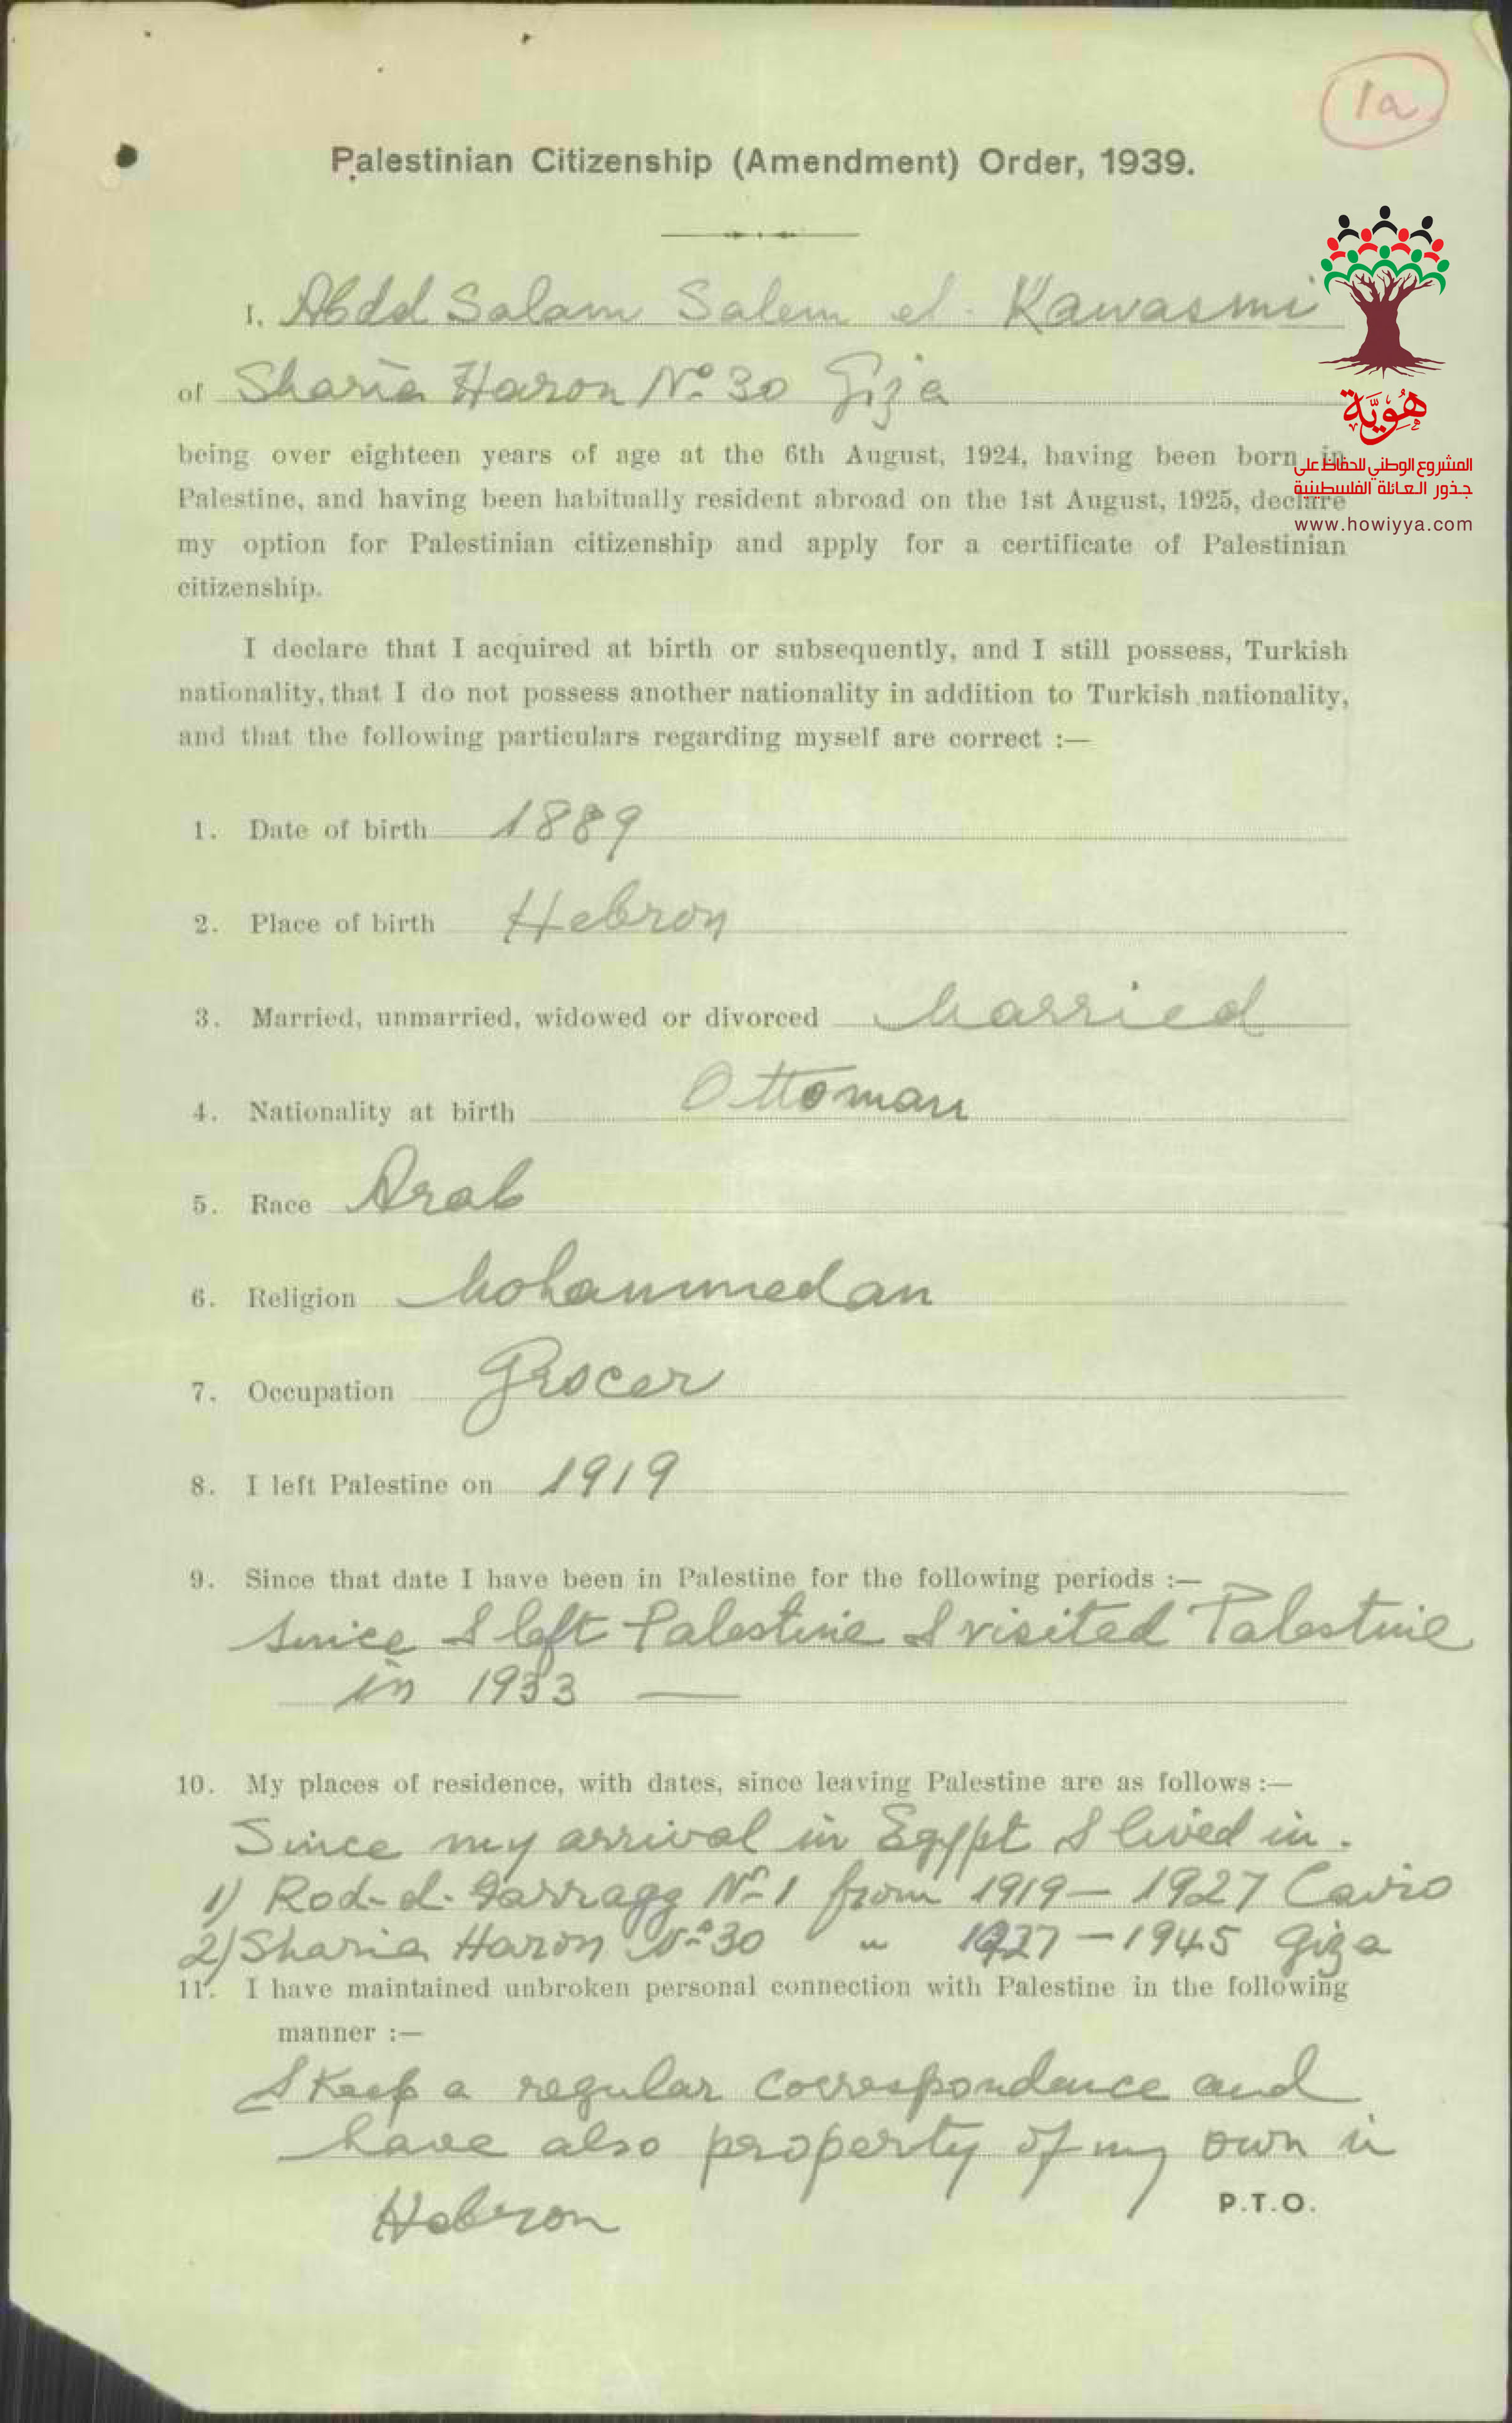 1a
Palestinian Citizenship (Amendment) Order, 1939.
I, Abdel Salam Salem el. Kawasmi
of Sharia Haron No 30 Giza
being over eighteen years of age at the 6th August, 1924, having been born in
Palestine, and having been habitually resident abroad on the 1st August, 1925, declare
my option for Palestinian citizenship and apply for a certificate of Palestinian
citizenship.
هُوِيَّة
المشروع الوطني للحفاظ على
جذور العائلة الفلسطينية
www.howiyya.com
I declare that I acquired at birth or subsequently, and I still possess, Turkish
nationality, that I do not possess another nationality in addition to Turkish nationality,
and that the following particulars regarding myself are correct :—
1. Date of birth 1889
2. Place of birth Hebron
3. Married, unmarried, widowed or divorced Married
4. Nationality at birth Ottoman
5. Race Arab
6. Religion Mohammedan
7. Occupation Grocer
8. I left Palestine on 1919
9. Since that date I have been in Palestine for the following periods :—
Since I left Palestine I visited Palestine
in 1933 —
10. My places of residence, with dates, since leaving Palestine are as follows :—
Since my arrival in Egypt I lived in.
1) Rod-el-Farragg No 1 from 1919 – 1927 Cairo
2) Sharia Haron No 30 " 1927 – 1945 Giza
11. I have maintained unbroken personal connection with Palestine in the following
manner :—
I Keep a regular correspondence and
have also property of my own in
Hebron
P.T.O.